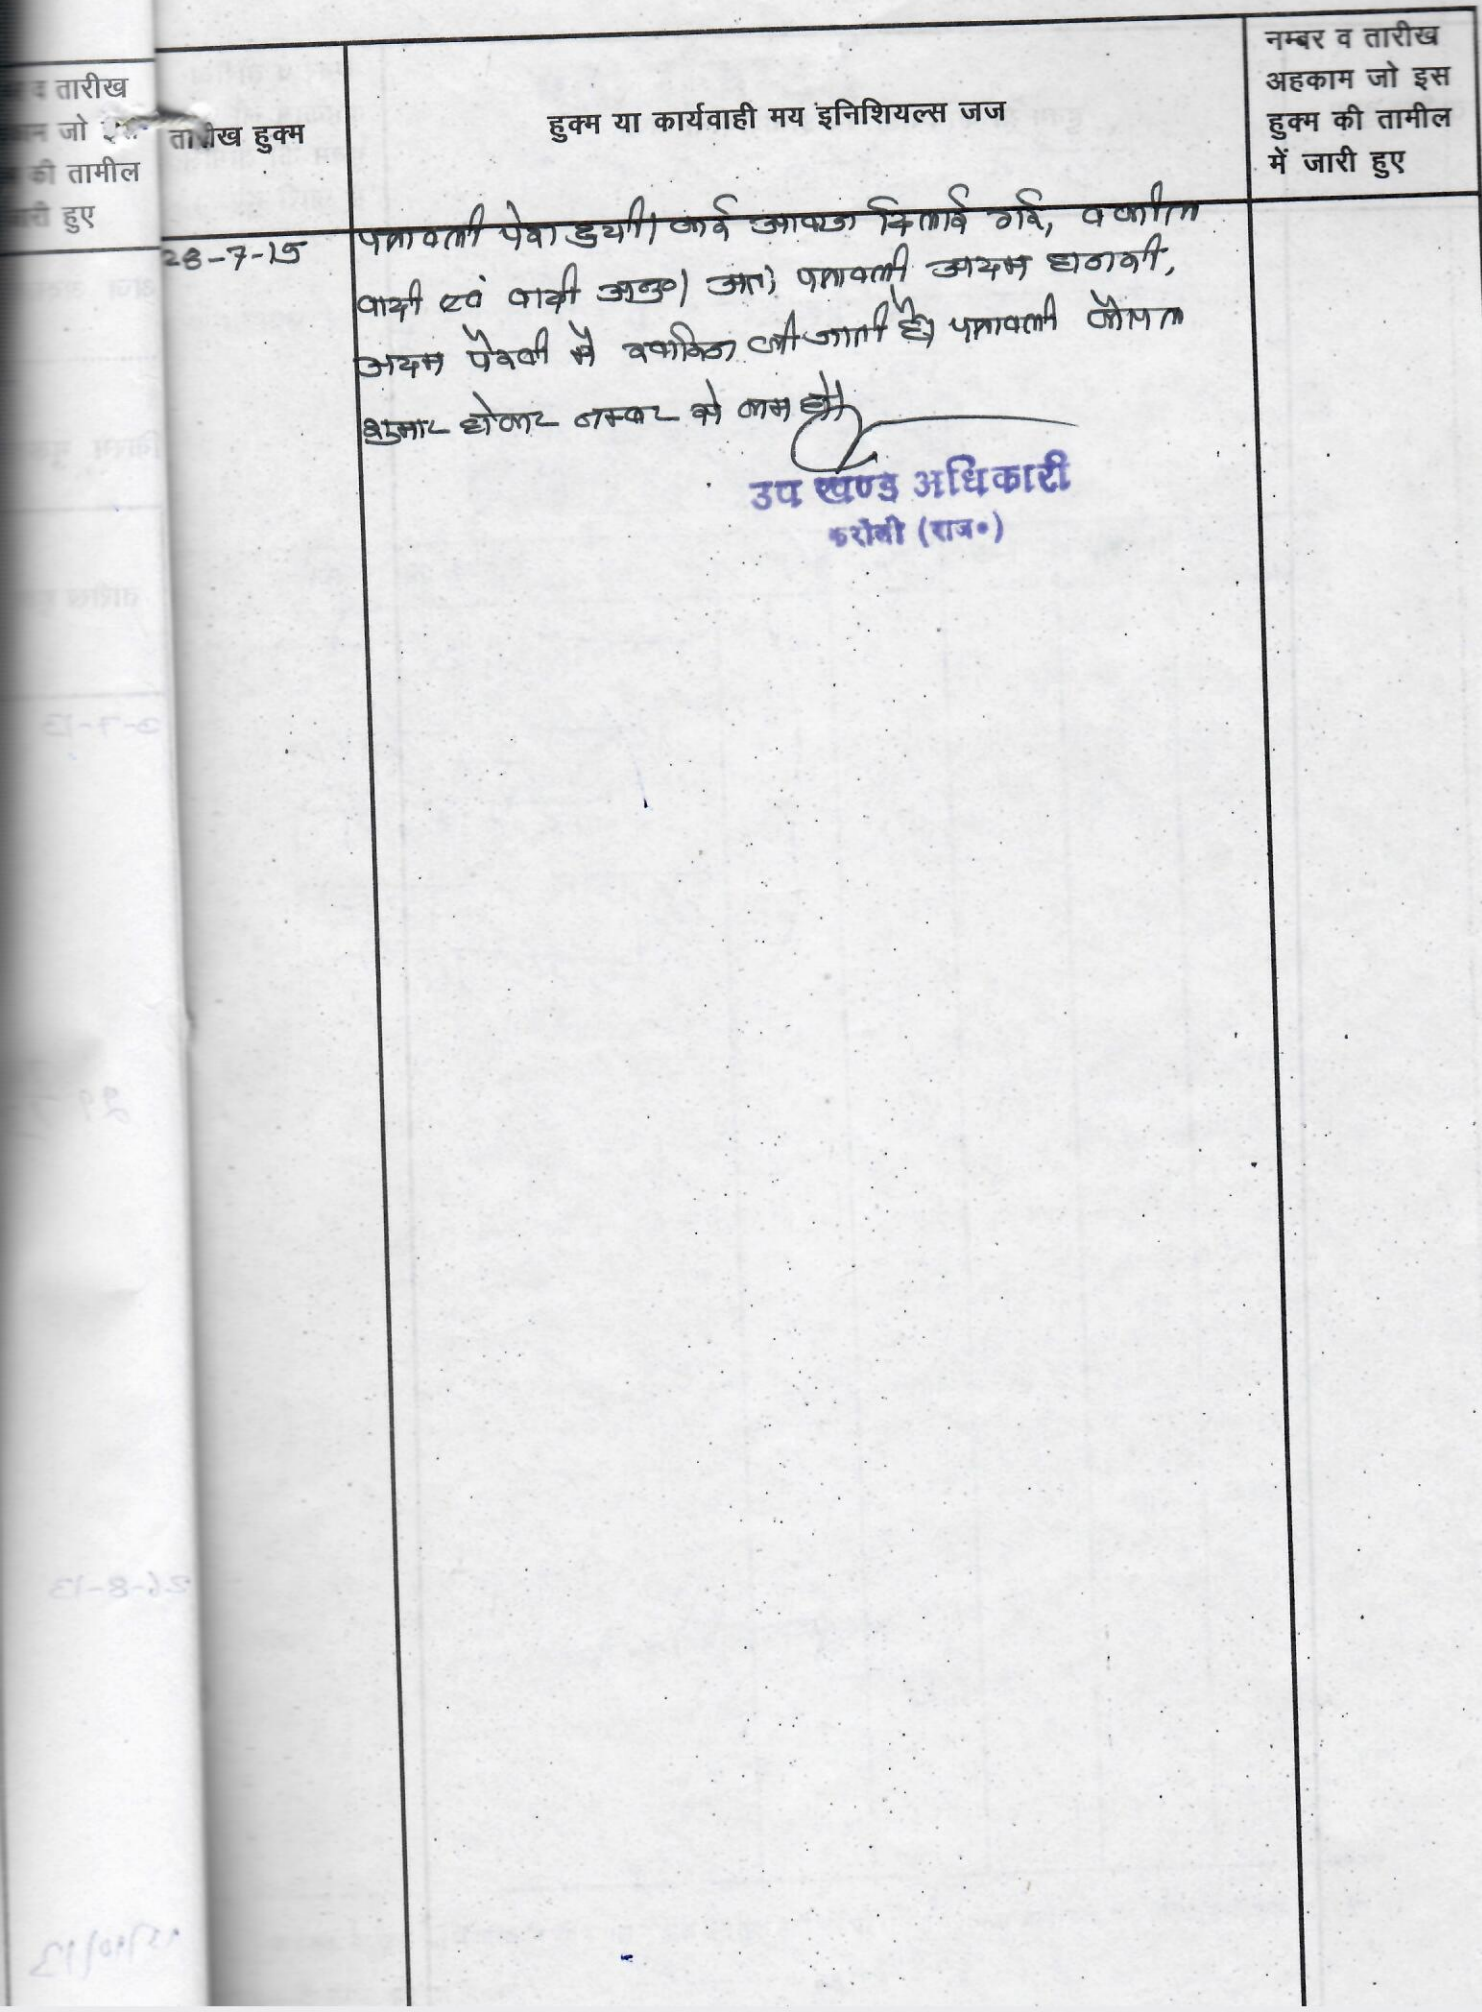 व तारीख
जो
की तामील
हुए
तारीख हुक्म
हुक्म या कार्यवाही मय इनिशियल्स जज
नम्बर व तारीख
अहकाम जो इस
हुक्म की तामील
में जारी हुए
28-7-15
पत्रावली पेश हुयी। कई आवाज दिलाई गई, वकील
वादी एवं वादी अनु०। अतः पत्रावली अदम हाजरी,
अदम पैरवी में खारिज की जाती है। पत्रावली फैसल
शुमार होकर नम्बर से कम हो।
उप खण्ड अधिकारी
करौली (राज०)